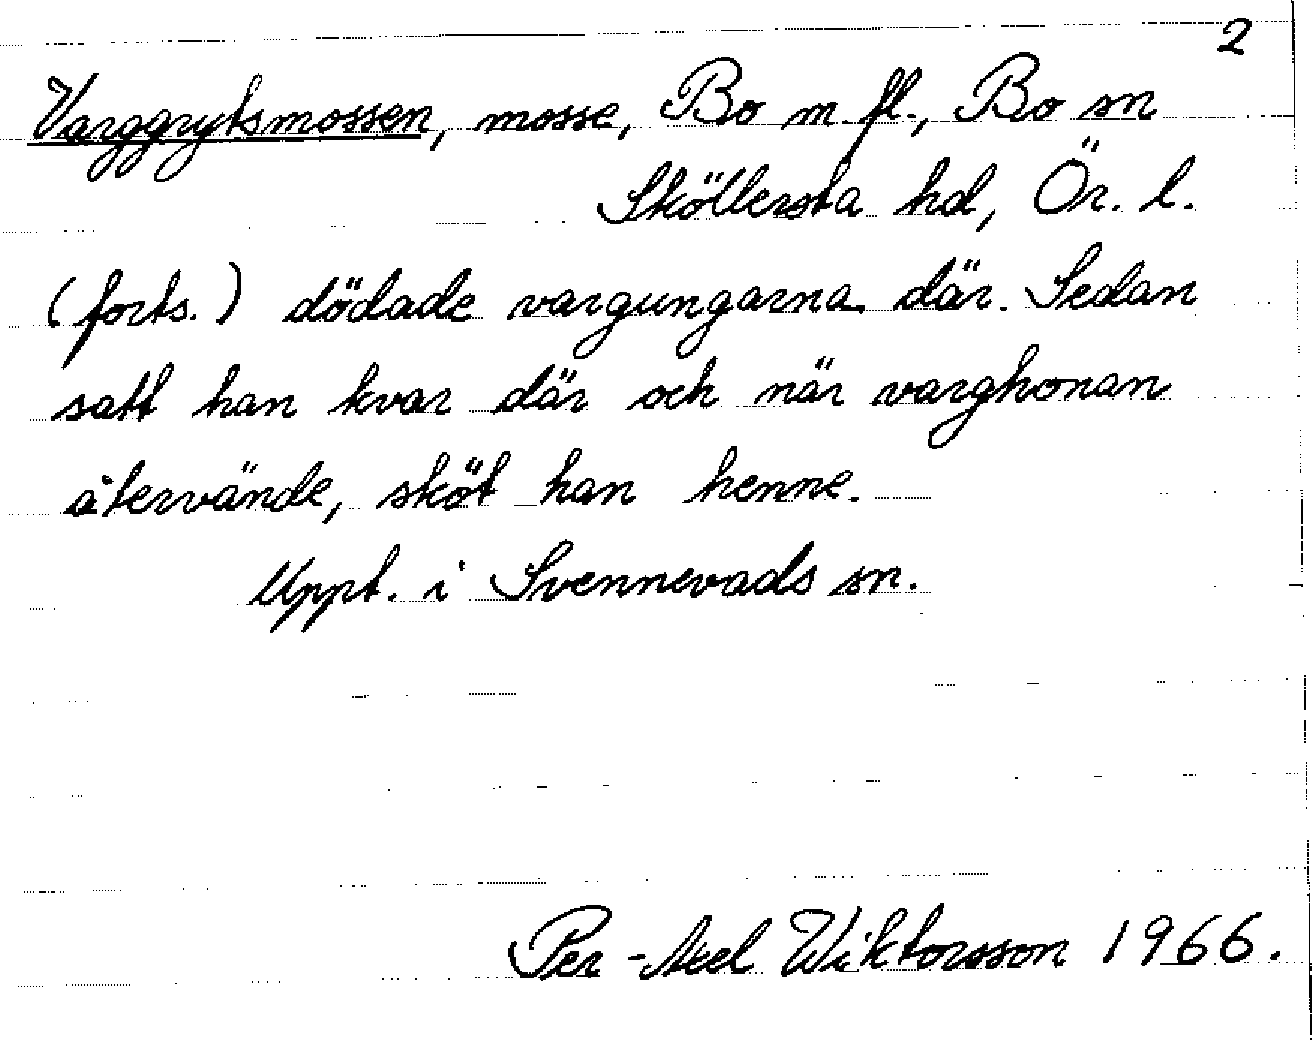 2
Varggrytsmossen, mosse, Bo m. fl., Bo sn
Sköllersta hd, Ör. l.
(forts.) dödade vargungarna där. Sedan
satt han kvar där och när varghonan
återvände, sköt han henne.
Uppt. i Svennevads sn.
Per-Axel Wiktorsson 1966.